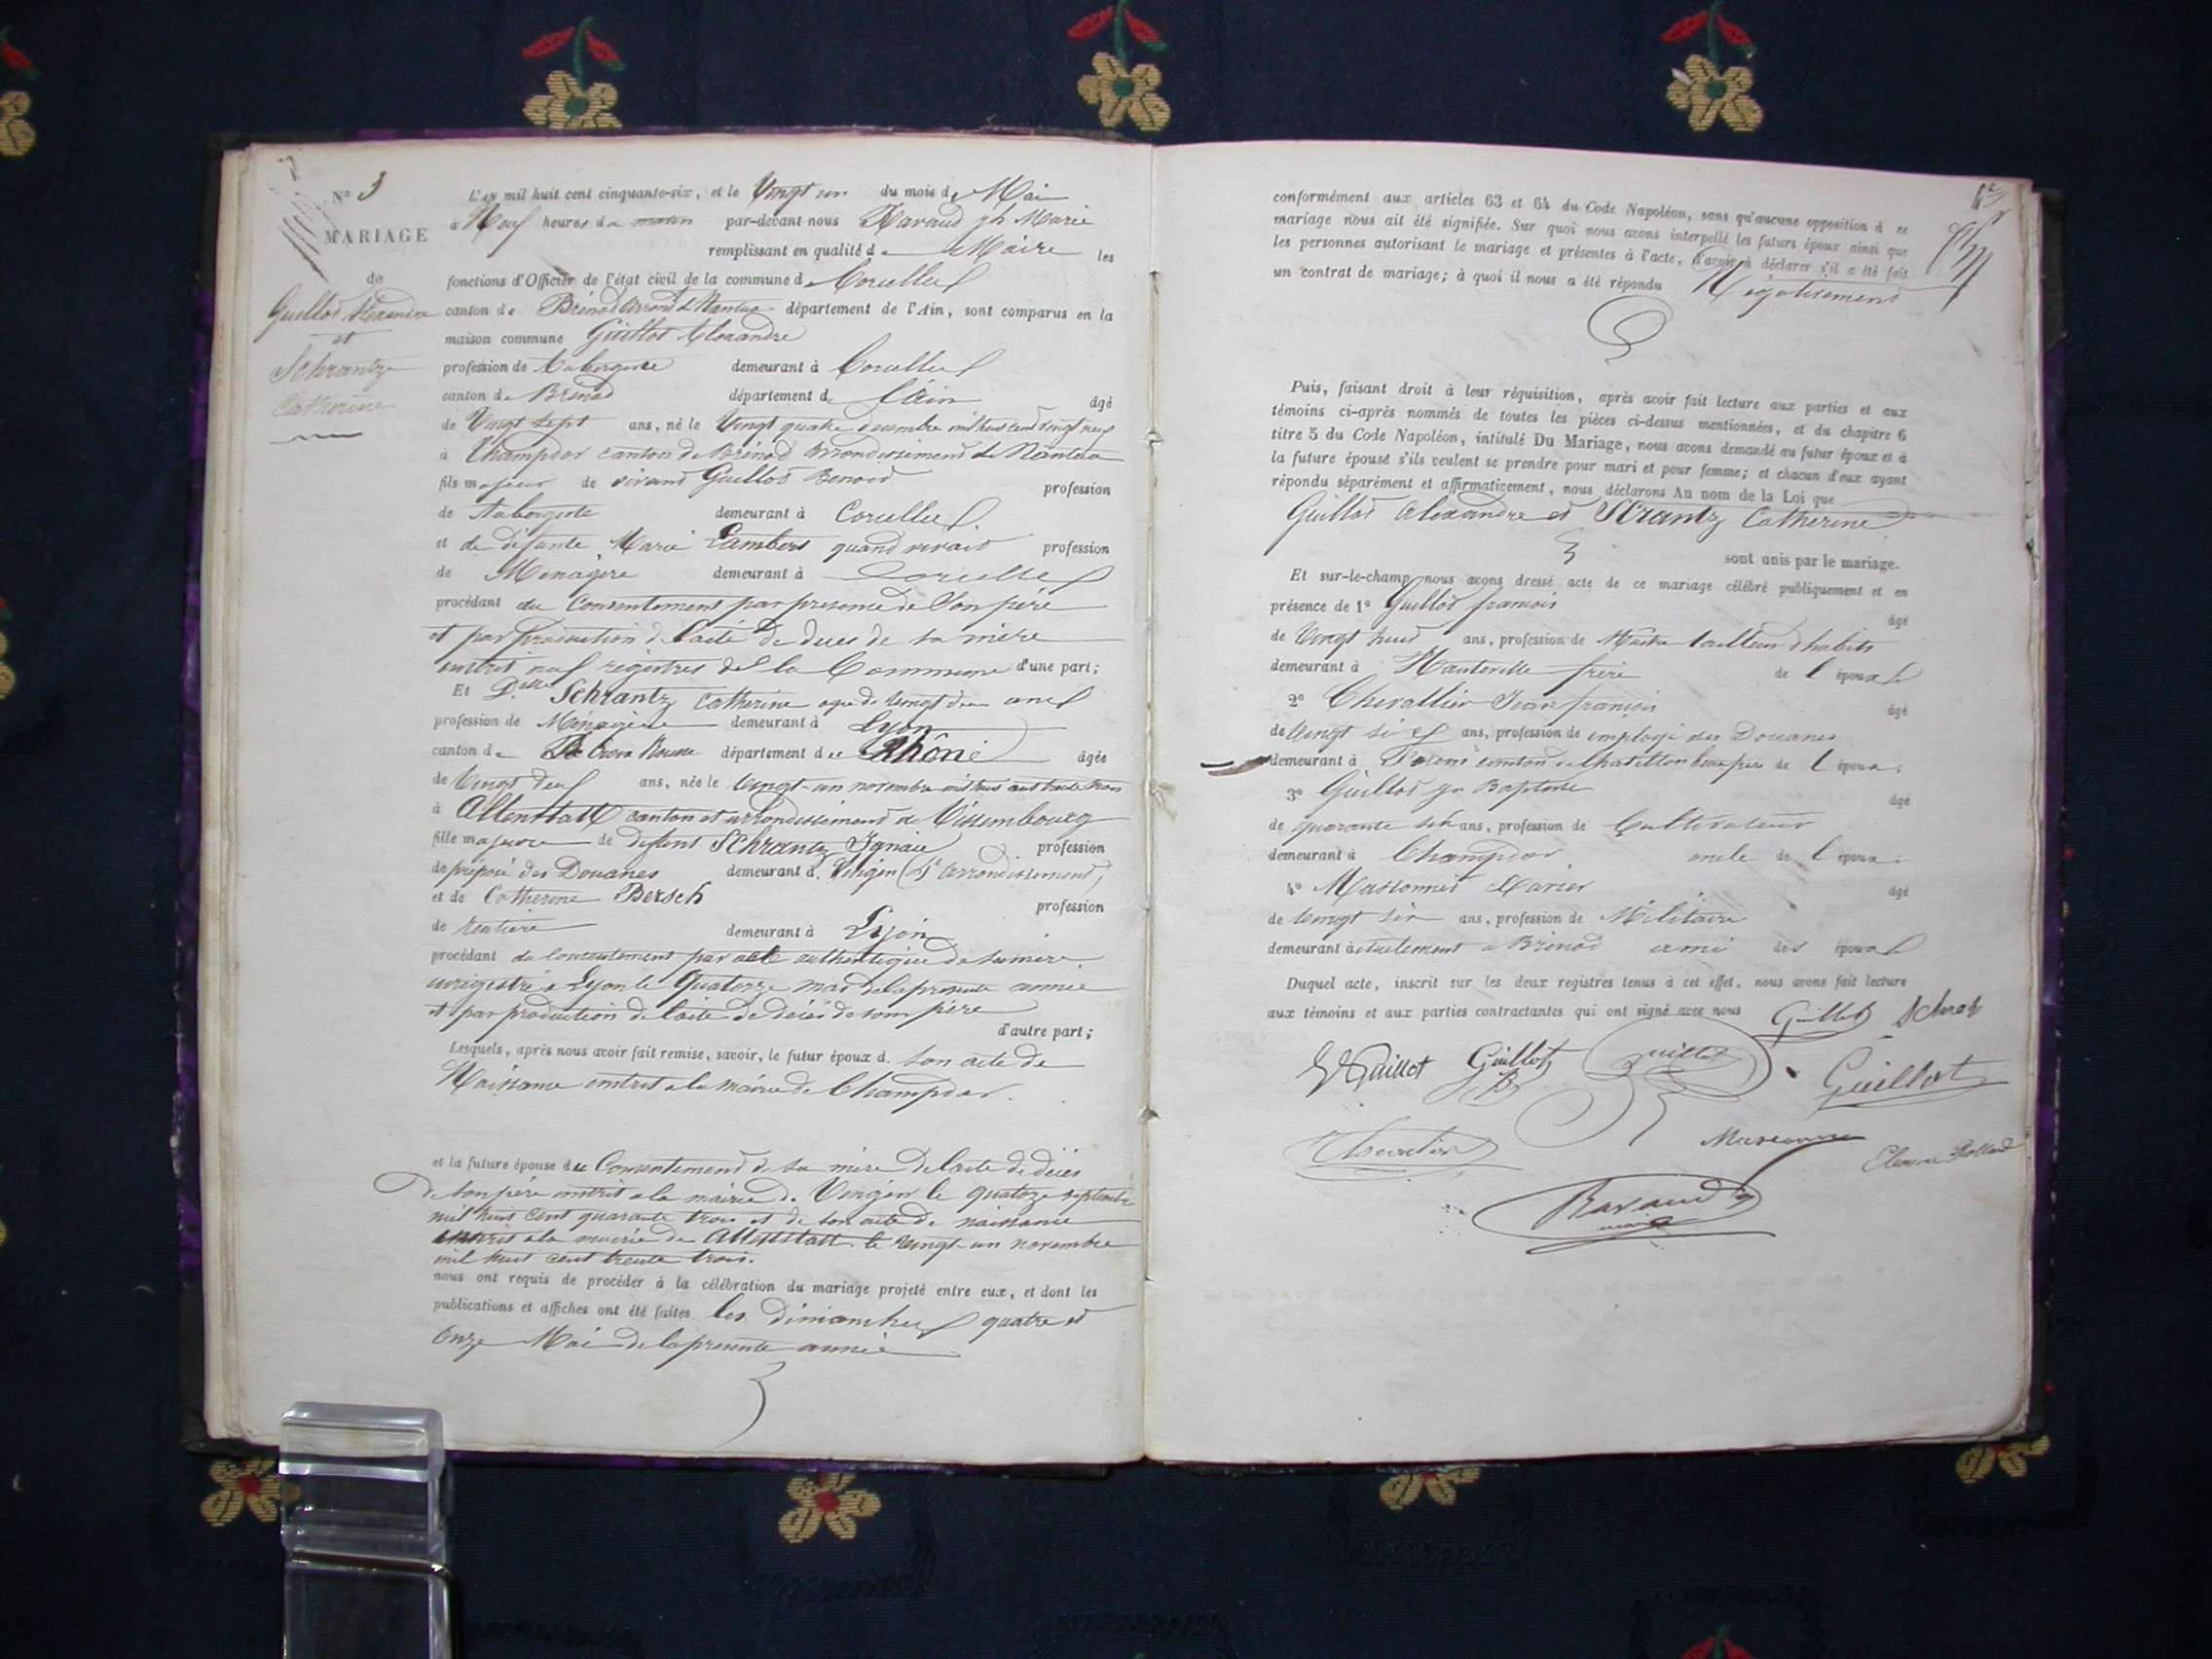 N° 3
MARIAGE
de
Guillot Alexandre
et
Schrantz
Catherine
L'an mil huit cent cinquante-six, et le Vingt un du mois de Mai
à Neuf heures du matin par-devant nous Ravaud jh Marie
remplissant en qualité de Maire les
fonctions d'Officier de l'état civil de la commune de Corcelles
canton de Brénod arrond de Nantua département de l'Ain, sont comparus en la
maison commune Guillot Alexandre
profession de Aubergiste demeurant à Corcelles
canton de Brénod département de l'Ain âgé
de Vingt sept ans, né le Vingt quatre decembre mil huit cent vingt neuf
à Champdor canton de Brénod arrondissement de Nantua
fils majeur de vivant Guillot Benoid profession
de Aubergiste demeurant à Corcelles.
et de défunte Marie Lambert quand vivait profession
de Menagère demeurant à Corcelles
procédant du Consentement par presence de Son père
et par production de l'acte de deces de sa mère
inscrit aux régistres de la Commune d'une part;
Et Dlle Schrantz Catherine agee de vingt deux ans
profession de Ménagère demeurant à Lyon
canton de La Croix Rousse département du Rhône âgée
de Vingt deux ans, née le Vingt-un novembre mil huit cent trente trois
à Altenstatt canton et arrondissement de Wissembourg
fille majeure de defunt Schrantz Ignace profession
de préposé des Douanes demeurant à Vingen (dt arrondissement)
et de Catherine Bersch profession
de Rentière demeurant à Lyon
procédant du consentement par acte authentique de sa mère
enregistré à Lyon le Quatorze mai de la presente année
et par production de l'acte de décès de son père
d'autre part;
Lesquels, après nous avoir fait remise, savoir, le futur époux d. son acte de
Naissance inscrit a la mairie de Champdor.
et la future épouse du Consentement de sa mère de l'acte de décès
de son père inscrit a la mairie de Vingen le quatorze septembre
mil huit cent quarante trois et de son acte de naissance
inscrit a la mairie de Altenstatt le vingt-un novembre
mil huit cent trente trois.
nous ont requis de procéder à la célébration du mariage projeté entre eux, et dont les
publications et affiches ont été faites les dimanches quatre et
Onze Mai de la presente année
conformément aux articles 63 et 64 du Code Napoléon, sans qu'aucune opposition à ce
mariage nous ait été signifiée. Sur quoi nous avons interpellé les futurs époux ainsi que
les personnes autorisant le mariage et présentes à l'acte, d'avoir à déclarer s'il a été fait
un contrat de mariage; à quoi il nous a été répondu Négativement
Puis, faisant droit à leur réquisition, après avoir fait lecture aux parties et aux
témoins ci-après nommés de toutes les pièces ci-dessus mentionnées, et du chapitre 6
titre 5 du Code Napoléon, intitulé Du Mariage, nous avons demandé au futur époux et à
la future épouse s'ils veulent se prendre pour mari et pour femme; et chacun d'eux ayant
répondu séparément et affirmativement, nous déclarons Au nom de la Loi que
Guillot Alexandre et Scrantz Catherine
sont unis par le mariage.
Et sur-le-champ nous avons dressé acte de ce mariage célébré publiquement et en
présence de 1° Guillot francois âgé
de Vingt huit ans, profession de Maitre tailleur d'habits
demeurant à Hauteville frère de l'époux
2° Chevallier Jean françois âgé
de Vingt six ans, profession de employé des Douanes
demeurant à canton de Chatillon beau frère de l'époux;
3° Guillot jn Baptiste âgé
de quarante sept ans, profession de Cultivateur
demeurant à Champdor oncle de l'époux;
4° Massonnet Xavier âgé
de Vingt six ans, profession de Militaire
demeurant actuelement a Brénod ami des époux
Duquel acte, inscrit sur les deux registres tenus à cet effet, nous avons fait lecture
aux témoins et aux parties contractantes qui ont signé avec nous Guillot Schrantz
Guillot Guillot Guillot Guillot
Chevalier
Ravaud
maire